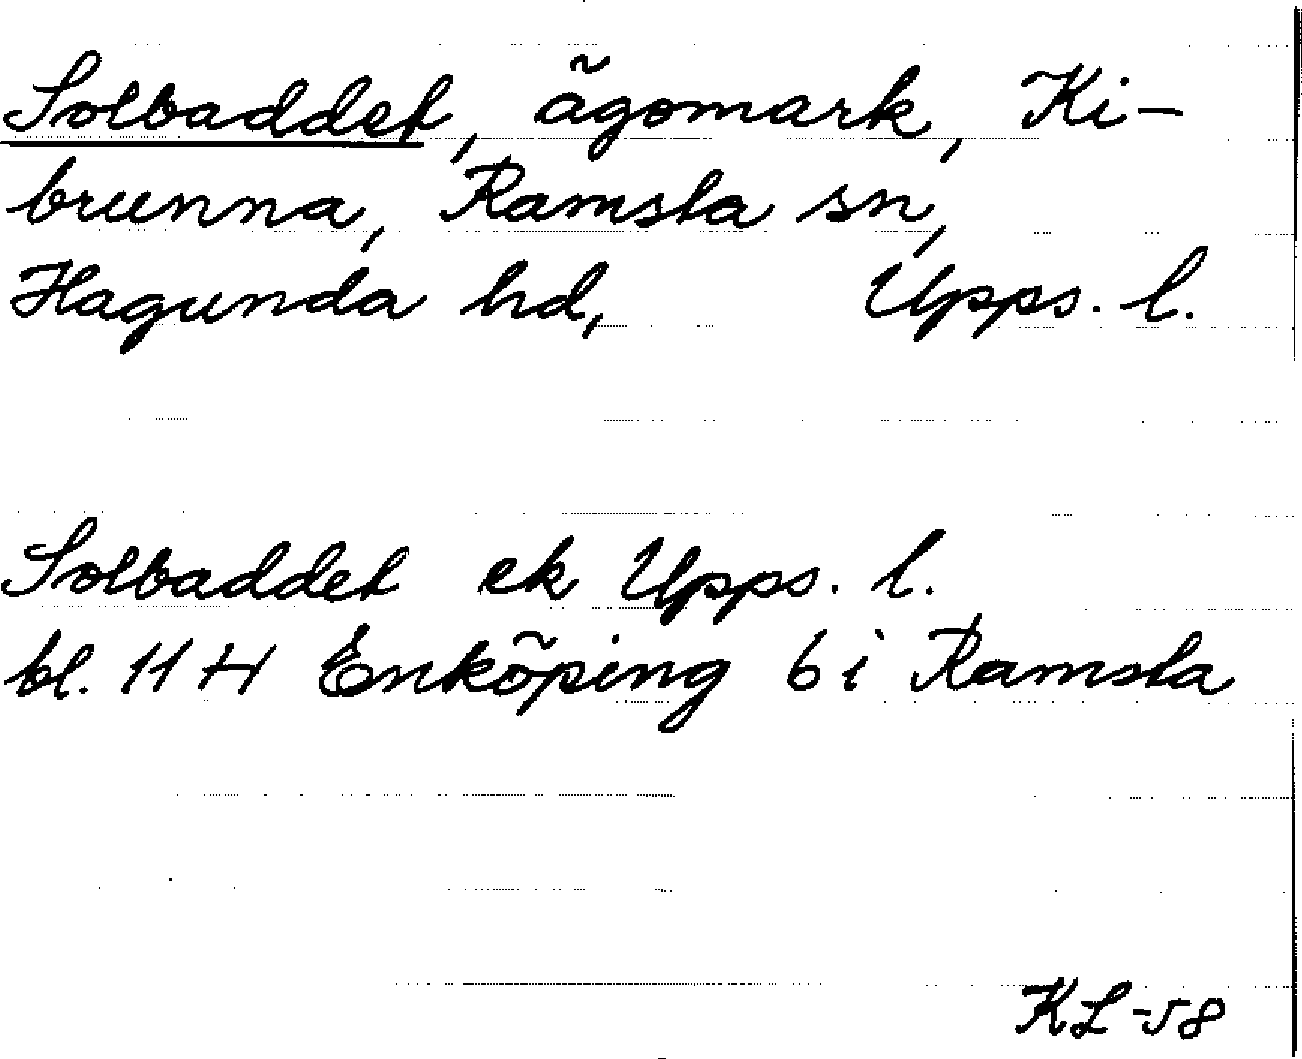 Solbaddet, ägomark, Ki-
brunna, Ramsta sn,
Hagunda hd, Upps. l.
Solbaddet ek Upps. l.
bl. 11 H Enköping 6 i Ramsta
KL-58